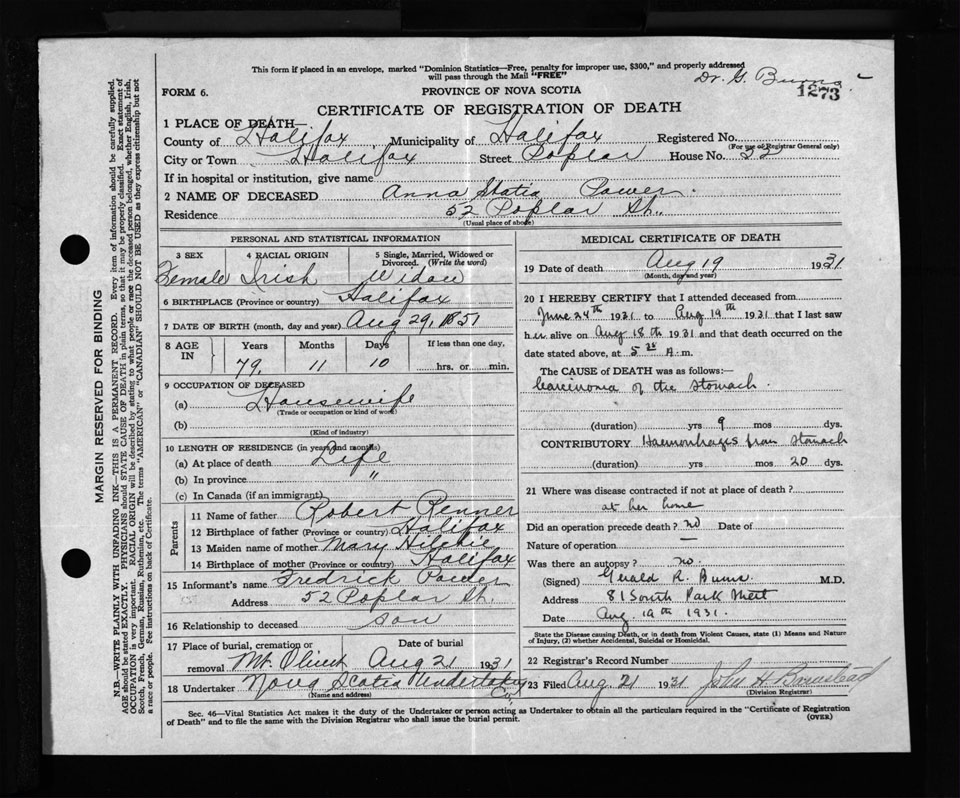 This form if placed in an envelope, marked "Dominion Statistics—Free, penalty for improper use, $300," and properly addressed
will pass through the Mail "FREE"
Dr. G. Burns
1273
FORM 6.
PROVINCE OF NOVA SCOTIA
CERTIFICATE OF REGISTRATION OF DEATH
1 PLACE OF DEATH—
County of Halifax Municipality of Halifax Registered No.
(For use of Registrar General only)
City or Town Halifax Street Poplar House No. 52
If in hospital or institution, give name
2 NAME OF DECEASED Anna Statia Power
Residence 52 Poplar St.
(Usual place of abode)
PERSONAL AND STATISTICAL INFORMATION
3 SEX 4 RACIAL ORIGIN 5 Single, Married, Widowed or Divorced. (Write the word)
Female Irish Widow
6 BIRTHPLACE (Province or country) Halifax
7 DATE OF BIRTH (month, day and year) Aug 29, 1851
8 AGE IN Years Months Days If less than one day,
79 11 10 hrs. or min.
9 OCCUPATION OF DECEASED
(a) Housewife
(Trade or occupation or kind of work)
(b)
(Kind of industry)
10 LENGTH OF RESIDENCE (in years and months)
(a) At place of death Life
(b) In province "
(c) In Canada (if an immigrant)
Parents
11 Name of father Robert Renner
12 Birthplace of father (Province or country) Halifax
13 Maiden name of mother Mary
14 Birthplace of mother (Province or country) Halifax
15 Informant's name Fredrick Power
Address 52 Poplar St.
16 Relationship to deceased son
17 Place of burial, cremation or removal Date of burial
Mt. Olivet Aug 21 1931
18 Undertaker Nova Scotia Undertaking Co.
(Name and address)
MEDICAL CERTIFICATE OF DEATH
19 Date of death Aug 19 1931
(Month, day and year)
20 I HEREBY CERTIFY that I attended deceased from
June 24th 1931 to Aug 19th 1931 that I last saw
her alive on Aug 18th 1931 and that death occurred on the
date stated above, at 5 A.m.
The CAUSE of DEATH was as follows:—
Carcinoma of the Stomach.
(duration) yrs 9 mos dys.
CONTRIBUTORY Haemorrhages from stomach
(duration) yrs mos 20 dys.
21 Where was disease contracted if not at place of death?
at her home
Did an operation precede death? no Date of
Nature of operation —
Was there an autopsy? no.
(Signed) Gerald R. Burns M.D.
Address 81 South Park Street
Date Aug. 19th 1931.
State the Disease causing Death, or in death from Violent Causes, state (1) Means and Nature
of Injury, (2) whether Accidental, Suicidal or Homicidal.
22 Registrar's Record Number
23 Filed Aug. 21 1931 John H Barnstead
(Division Registrar)
Sec. 46—Vital Statistics Act makes it the duty of the Undertaker or person acting as Undertaker to obtain all the particulars required in the "Certificate of Registration
of Death" and to file the same with the Division Registrar who shall issue the burial permit.
(OVER)
MARGIN RESERVED FOR BINDING
N.B.—WRITE PLAINLY WITH UNFADING INK—THIS IS A PERMANENT RECORD. Every item of information should be carefully supplied.
AGE should be stated EXACTLY. PHYSICIANS should STATE CAUSE OF DEATH in plain terms, so that it may be properly classified. Exact statement of
OCCUPATION is very important. RACIAL ORIGIN will be described by stating to what people or race the deceased person belonged, whether English, Irish,
Scotch, French, German, Russian, Ruthenian, etc. The terms "AMERICAN" or "CANADIAN" SHOULD NOT BE USED as they express citizenship but not
a race or people. See instructions on back of Certificate.